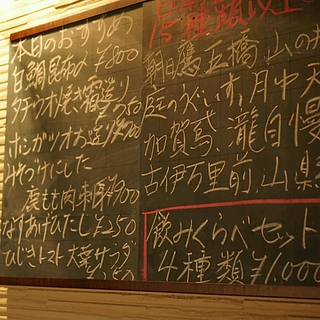 本日のおすすめ
白鯛昆布〆 ¥800
タチウオ焼き霜造り
ホシガツオお造り
みそづけにした
鹿もも肉 刺身 ¥900
なすあげびたし ¥250
ひじきトマト大葉サラダ
種類以上
朝日鷹 五橋 山の井
庭のうぐいす 月中天
加賀鳶、瀧自慢
古伊万里 前、山縣
飲みくらべセット
4種類 ¥1,000